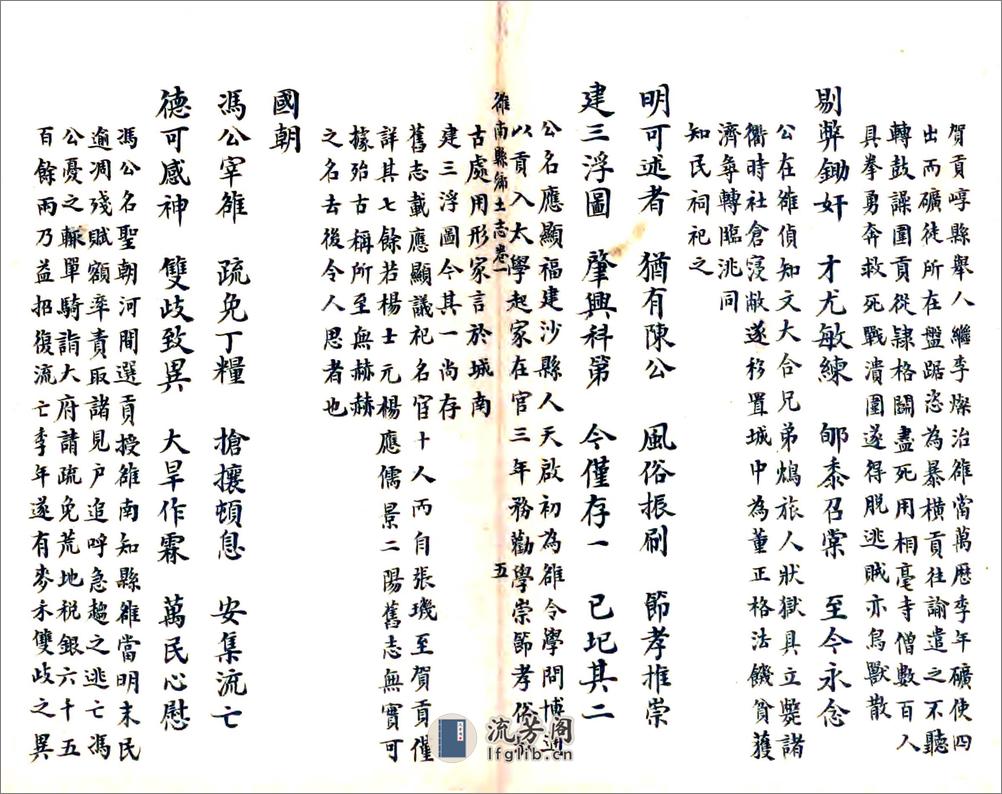 賀貢崞縣舉人繼李燦治雒當萬厯季年礦使四
出而礦徒所在盤踞恣為暴橫貢往諭遣之不聽
轉鼓譟圍貢從隸格鬭盡死用相毫寺僧數百人
具拳勇奔救死戰潰圍遂得脫逃賊亦鳥獸散
剔弊鋤奸 才尤敏練 郇黍召棠 至今永念
公在雒偵知文大合兄弟鴆旅人狀獄具立斃諸
衢時社倉寖敝遂移置城中為董正格法饑貧獲
濟每轉臨洮同
知民祠祀之
明可述者 猶有陳公 風俗振刷 節孝推崇
建三浮圖 肇興科第 今僅存一 已圮其二
公名應顯福建沙縣人天啟初為雒令學問博通
以貢入太學起家在官三年務勸學崇節孝俗
雒南縣鄉土志卷一 五
古處用形家言於城南
建三浮圖今其一尚存
舊志載應顯議祀名宦十人丙自張璣至賀貢僅
詳其七餘若楊士元楊應儒景二陽舊志無實可
據殆古稱所至無赫赫
之名去後令人思者也
國朝
馮公宰雒 疏免丁糧 搶攘頓息 安集流亡
德可感神 雙歧致異 大旱作霖 萬民心慰
馮公名聖朝河間選貢授雒南知縣雒當明末民
逾凋殘賦額率責取諸見户追呼急趨之逃亡馮
公憂之輙單騎詣大府請疏免荒地税銀六千五
百餘兩乃益招復流亡季年遂有麥禾雙歧之異
流芳阁
lfglib.cn